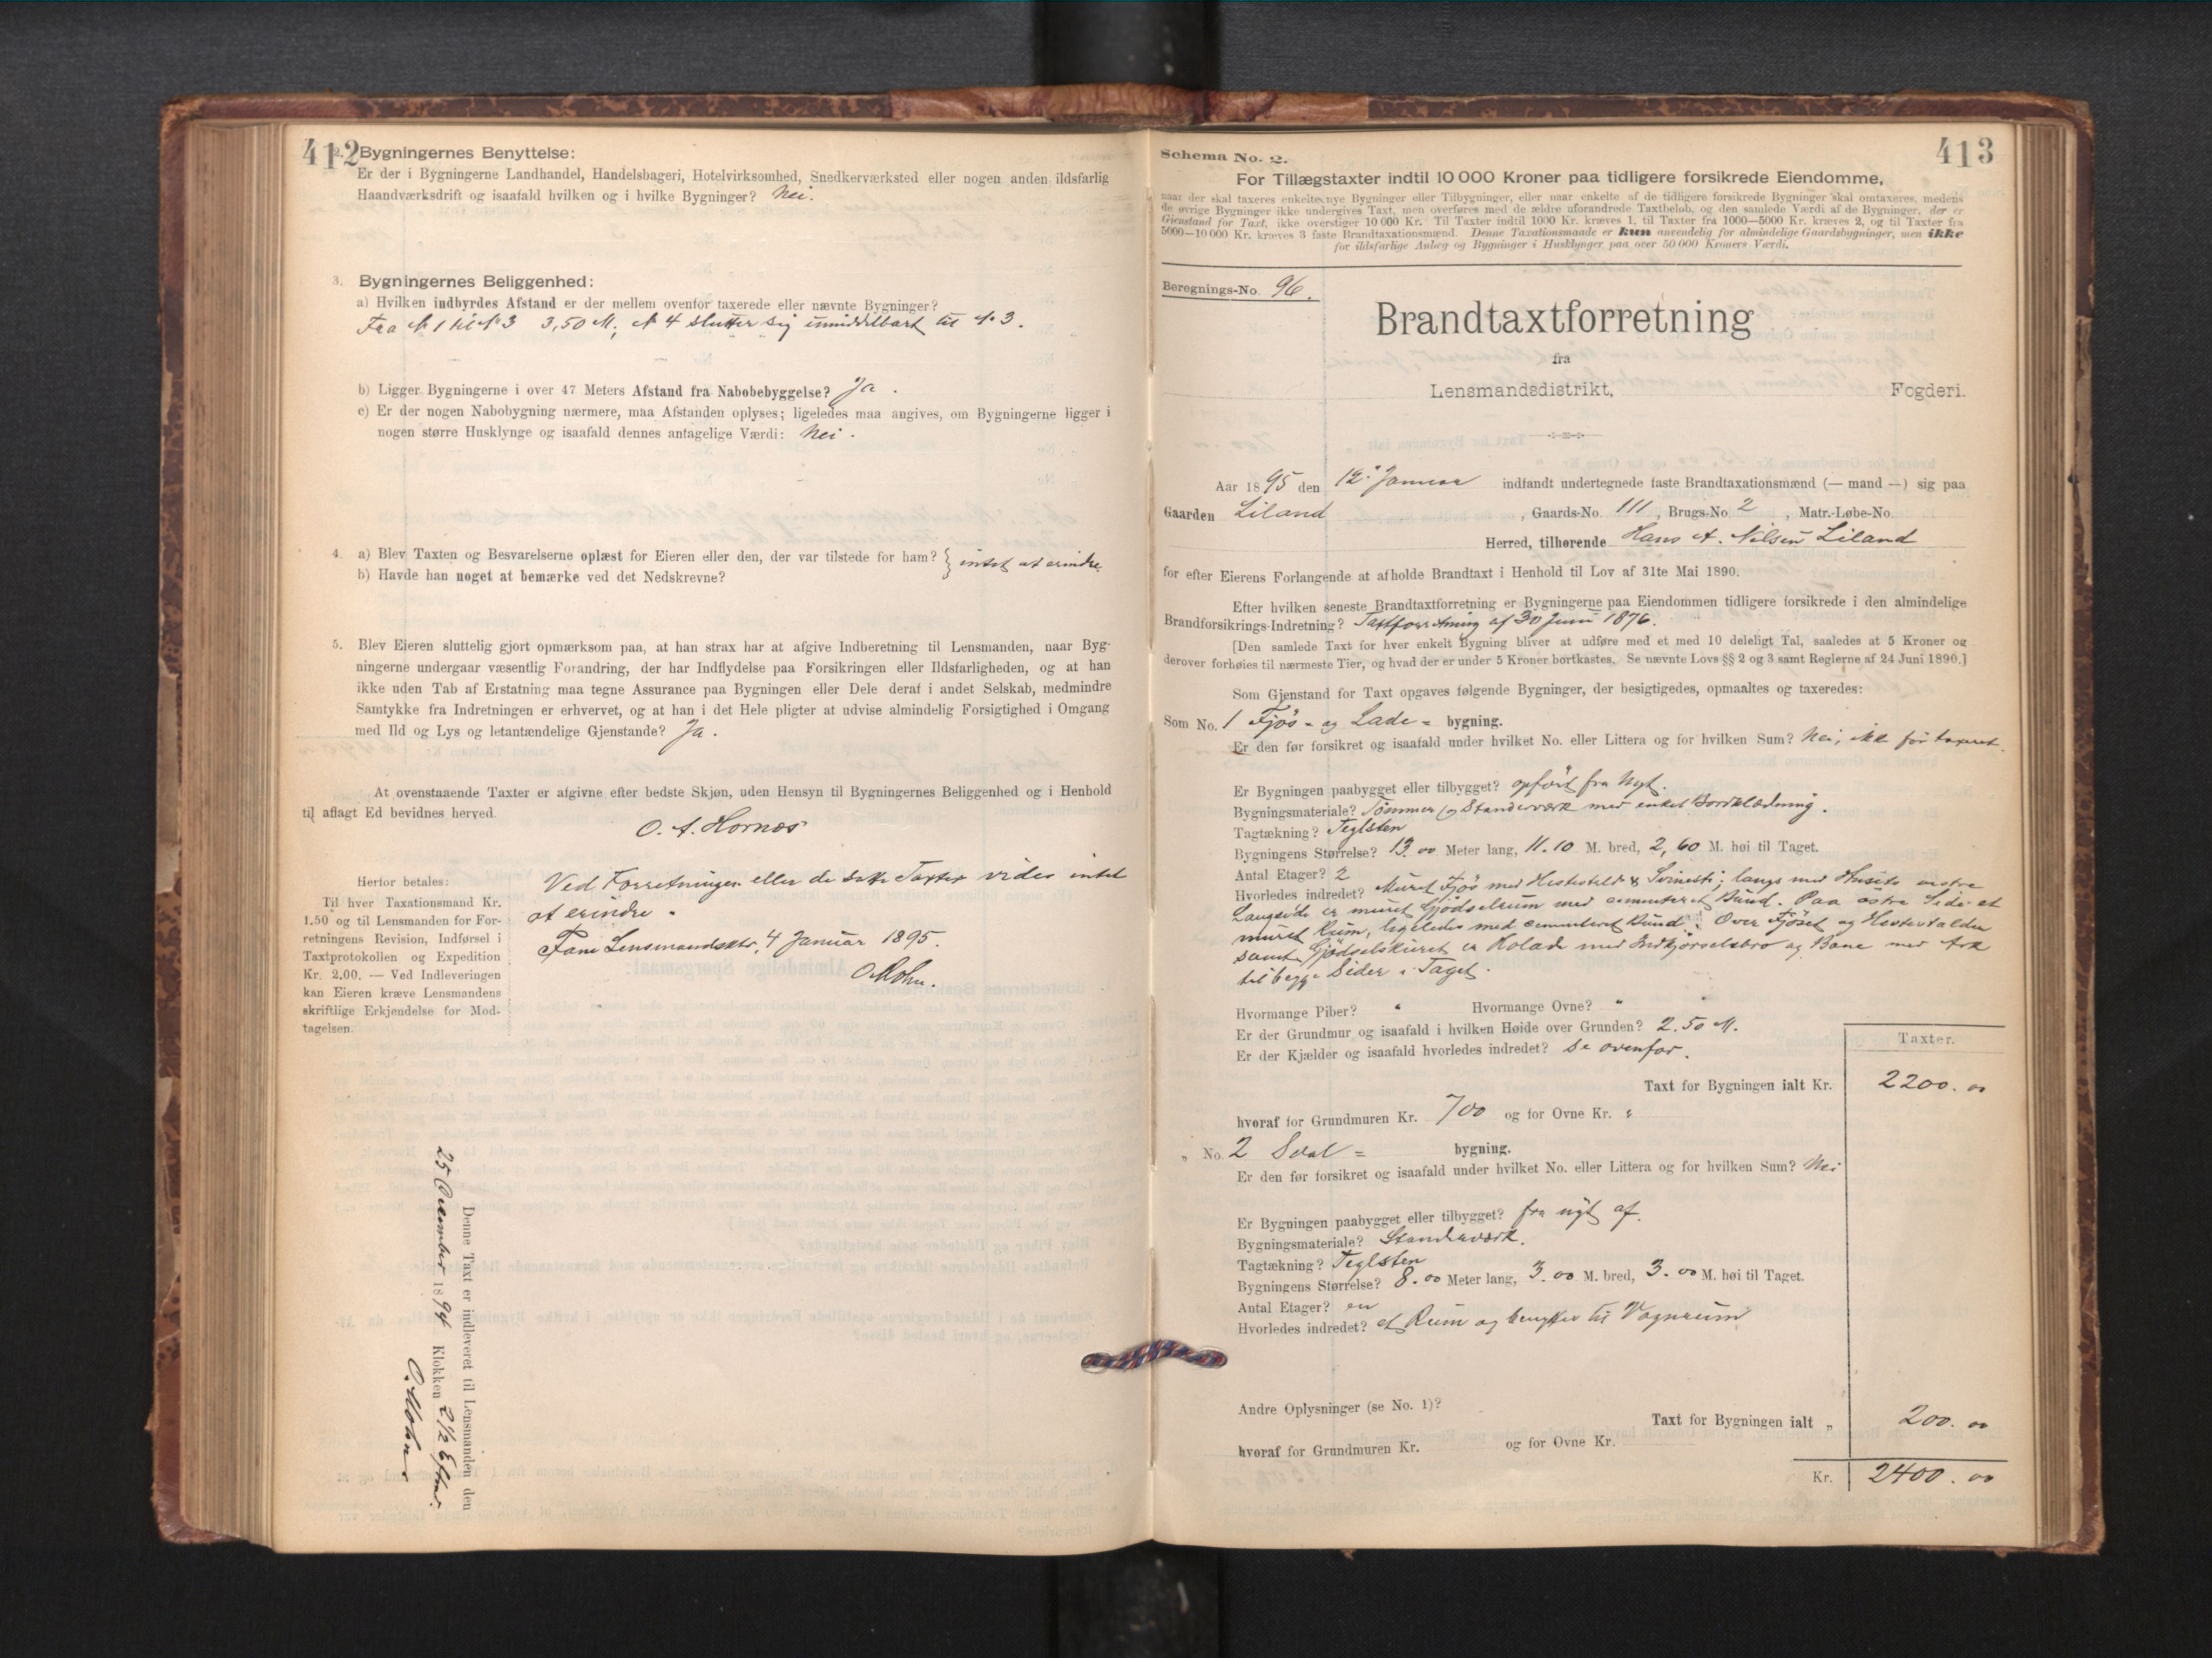 412
2. Bygningernes Benyttelse:
Er der i Bygningerne Landhandel, Handelsbageri, Hotelvirksomhed, Snedkerværksted eller nogen anden ildsfarlig
Haandværksdrift og isaafald hvilken og i hvilke Bygninger? Nei.
3. Bygningernes Beliggenhed:
a) Hvilken indbyrdes Afstand er der mellem ovenfor taxerede eller nævnte Bygninger?
Fra N 1 til N 3 3,50 M; N 4 slutter sig umiddelbart til N 3.
b) Ligger Bygningerne i over 47 Meters Afstand fra Nabobebyggelse? Ja.
c) Er der nogen Nabobygning nærmere, maa Afstanden oplyses; ligeledes maa angives, om Bygningerne ligger i
nogen større Husklynge og isaafald dennes antagelige Værdi: Nei.
4. a) Blev Taxten og Besvarelserne oplæst for Eieren eller den, der var tilstede for ham?
b) Havde han noget at bemærke ved det Nedskrevne? } intet at erindre
5. Blev Eieren sluttelig gjort opmærksom paa, at han strax har at afgive Indberetning til Lensmanden, naar Byg-
ningerne undergaar væsentlig Forandring, der har Indflydelse paa Forsikringen eller Ildsfarligheden, og at han
ikke uden Tab af Erstatning maa tegne Assurance paa Bygningen eller Dele deraf i andet Selskab, medmindre
Samtykke fra Indretningen er erhvervet, og at han i det Hele pligter at udvise almindelig Forsigtighed i Omgang
med Ild og Lys og letantændelige Gjenstande? Ja.
At ovenstaaende Taxter er afgivne efter bedste Skjøn, uden Hensyn til Bygningernes Beliggenhed og i Henhold
til aflagt Ed bevidnes herved.
O. A. Hornæs
Herfor betales:
Til hver Taxationsmand Kr.
1.50 og til Lensmanden for For-
retningens Revision, Indførsel i
Taxtprotokollen og Expedition
Kr. 2.00. — Ved Indleveringen
kan Eieren kræve Lensmandens
skriftlige Erkjendelse for Mod-
tagelsen.
Ved Forretningen eller de satte Taxter vides intet
at erindre.
Fane Lensmandsktr, 4 Januar 1895.
O Mohn.
Denne Taxt er indleveret til Lensmanden den
25 December 1894 Klokken 2 1/2 Eftm.
O. Mohn
413
Schema No. 2.
For Tillægstaxter indtil 10 000 Kroner paa tidligere forsikrede Eiendomme,
naar der skal taxeres enkelte nye Bygninger eller Tilbygninger, eller naar enkelte af de tidligere forsikrede Bygninger skal omtaxeres, medens
de øvrige Bygninger ikke undergives Taxt, men overføres med de ældre uforandrede Taxtbeløb, og den samlede Værdi af de Bygninger, der er
Gjenstand for Taxt, ikke overstiger 10 000 Kr. Til Taxter indtil 1000 Kr. kræves 1, til Taxter fra 1000—5000 Kr. kræves 2, og til Taxter fra
5000—10 000 Kr. kræves 3 faste Brandtaxationsmænd. Denne Taxationsmaade er kun anvendelig for almindelige Gaardsbygninger, men ikke
for ildsfarlige Anlæg og Bygninger i Husklynger paa over 50 000 Kroners Værdi.
Beregnings-No. 96.
Brandtaxtforretning
fra
Lensmandsdistrikt, Fogderi.
Aar 1895 den 12. Januar indfandt undertegnede faste Brandtaxationsmænd (— mand —) sig paa
Gaarden Liland, Gaards-No. 111, Brugs-No. 2, Matr.-Løbe-No.
Herred, tilhørende Hans A. Nilsen Liland
for efter Eierens Forlangende at afholde Brandtaxt i Henhold til Lov af 31te Mai 1890.
Efter hvilken seneste Brandtaxtforretning er Bygningerne paa Eiendommen tidligere forsikrede i den almindelige
Brandforsikrings-Indretning? Taxtforretning af 30 Juni 1876.
[Den samlede Taxt for hver enkelt Bygning bliver at udføre med et med 10 deleligt Tal, saaledes at 5 Kroner og
derover forhøies til nærmeste Tier, og hvad der er under 5 Kroner bortkastes. Se nævnte Lovs §§ 2 og 3 samt Reglerne af 24 Juni 1890.]
Som Gjenstand for Taxt opgaves følgende Bygninger, der besigtigedes, opmaaltes og taxeredes:
Som No. 1 Fjøs- og Lade- bygning.
Er den før forsikret og isaafald under hvilket No. eller Littera og for hvilken Sum? Nei, ikke før taxeret.
Er Bygningen paabygget eller tilbygget? opført fra Nyt.
Bygningsmateriale? Tømmer og Standerværk med enkel Bordklædning.
Tagtækning? Teglsten
Bygningens Størrelse? 13.00 Meter lang, 11.10 M. bred, 2,60 M. høi til Taget.
Antal Etager? 2
Hvorledes indredet? Muret Fjøs med Hestestald & Svinesti; langs med Husets vestre
Langside er muret Gjødselrum med cementeret Bund. Paa østre Side et
muret Rum, ligeledes med cementeret Bund. Over Fjøset og Hestestalden
samt Gjødselskuret er Holade med Indkjørselsbro og Bane med Ark
til begge Sider i Taget.
Hvormange Piber? " Hvormange Ovne? "
Er der Grundmur og isaafald i hvilken Høide over Grunden? 2.50 M.
Er der Kjælder og isaafald hvorledes indredet? Se ovenfor.
Taxter.
Taxt for Bygningen ialt Kr. 2200.00
hvoraf for Grundmuren Kr. 700 og for Ovne Kr. "
„ No. 2 Sval- bygning.
Er den før forsikret og isaafald under hvilket No. eller Littera og for hvilken Sum? Nei
Er Bygningen paabygget eller tilbygget? fra nyt af.
Bygningsmateriale? Standerværk.
Tagtækning? Teglsten
Bygningens Størrelse? 8.00 Meter lang, 3.00 M. bred, 3.00 M. høi til Taget.
Antal Etager? en
Hvorledes indredet? et Rum og benyttes til Vognrum
Andre Oplysninger (se No. 1)?
Taxt for Bygningen ialt „ 200.00
hvoraf for Grundmuren Kr. og for Ovne Kr.
Kr. 2400.00